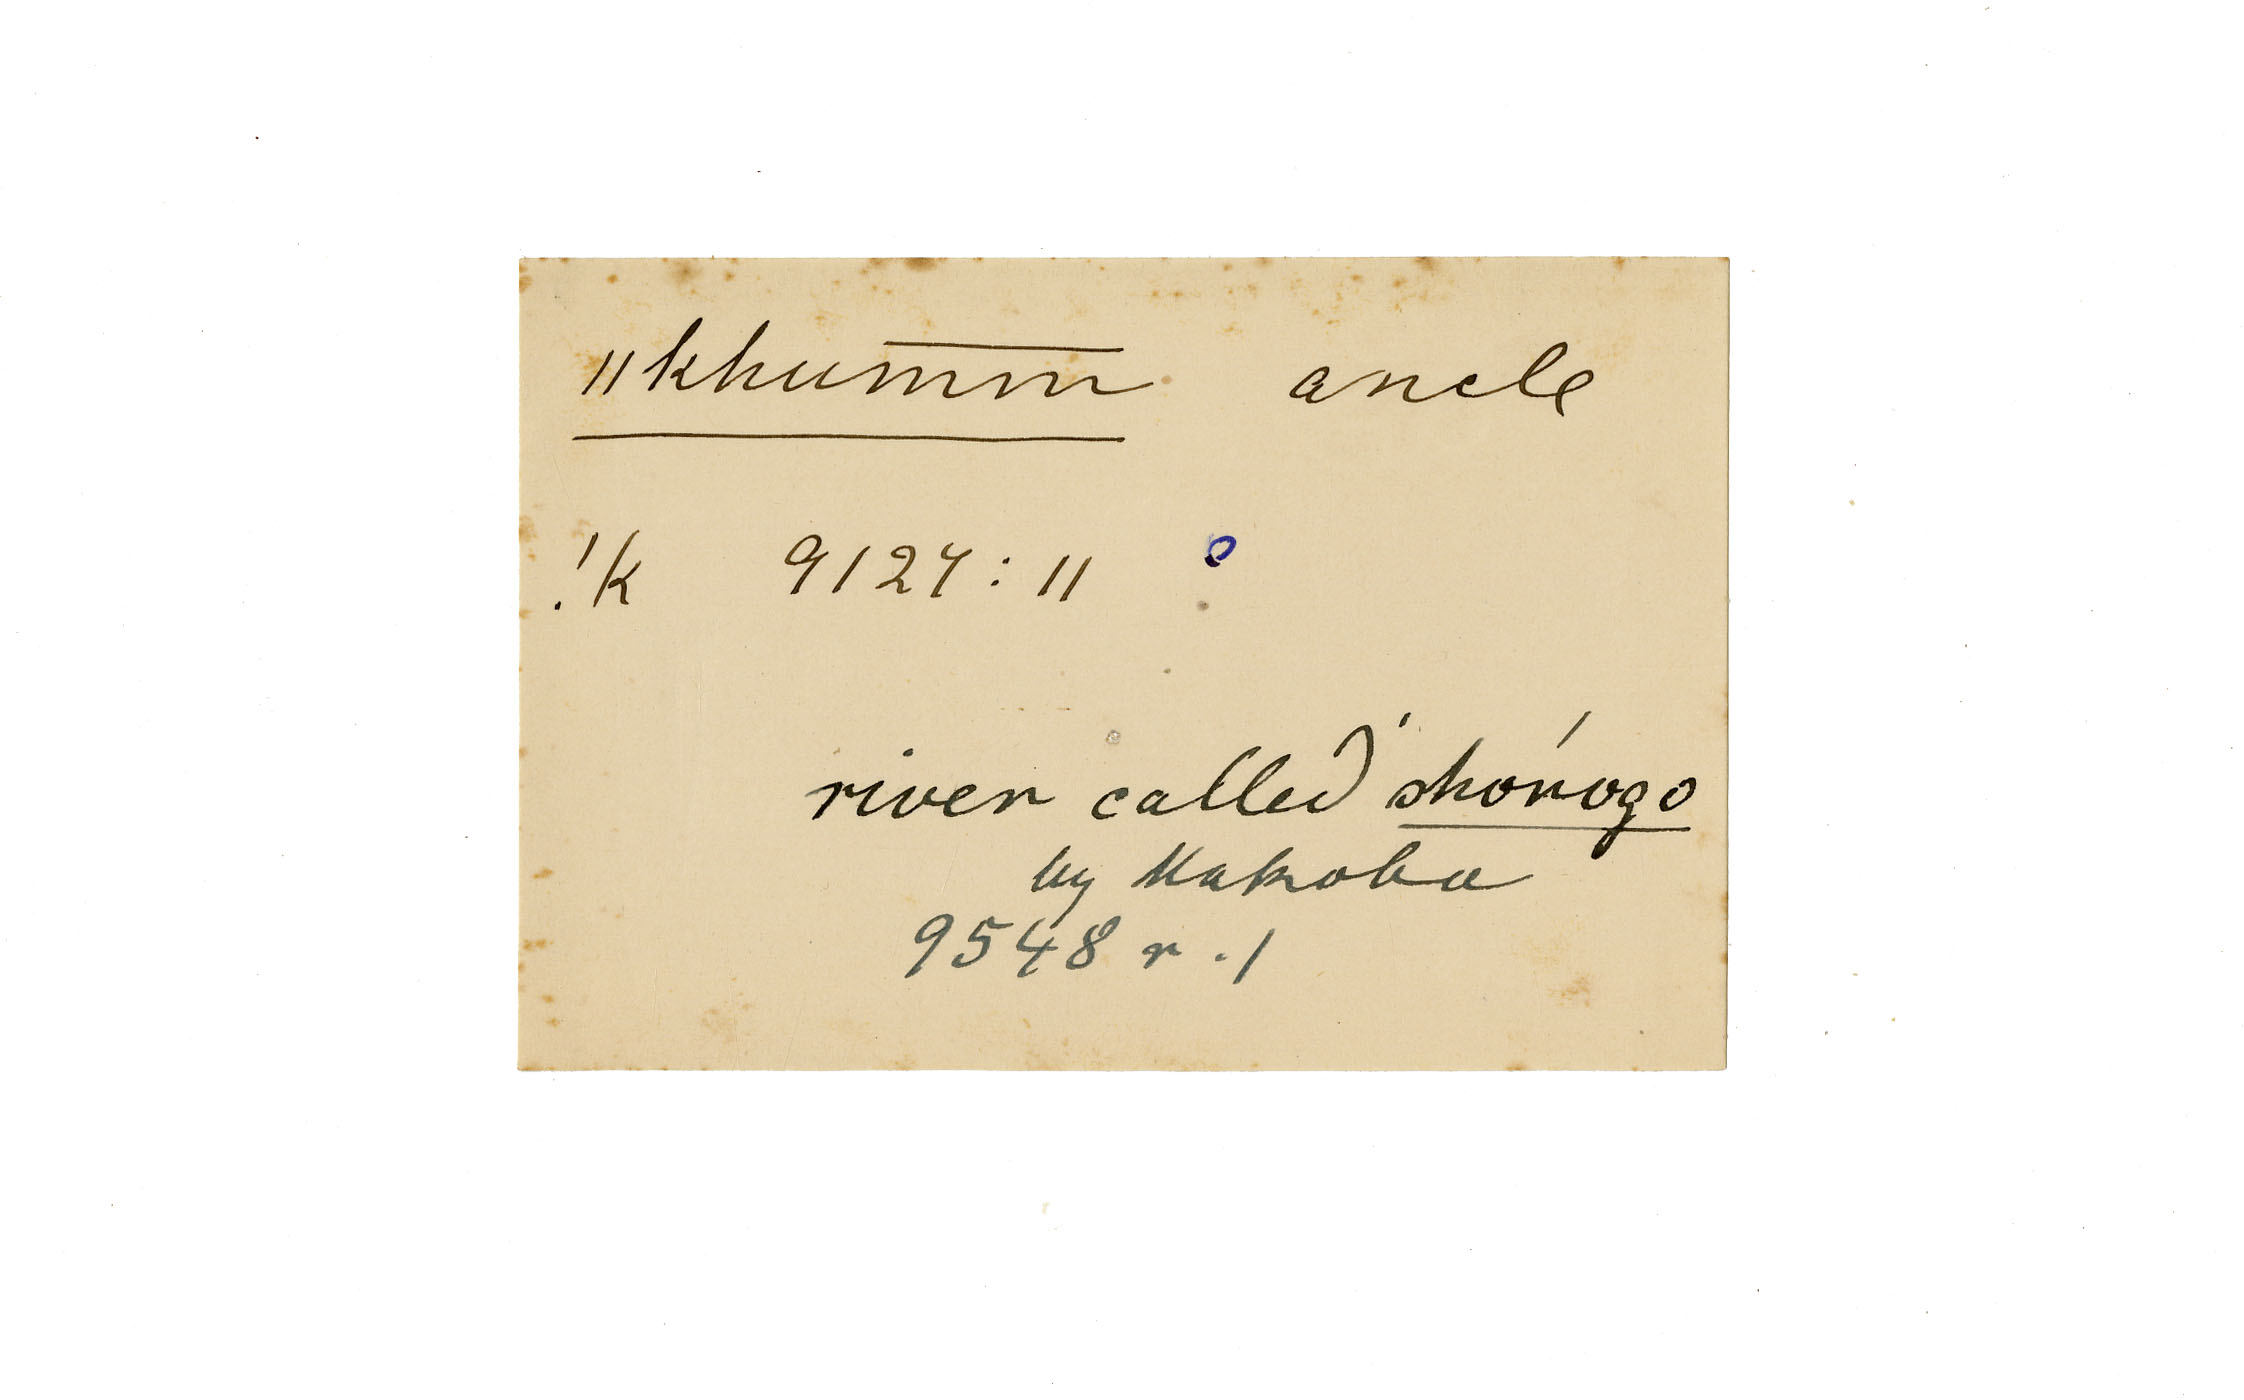 ǁkhumm ancle
!k 9127:11
river called 'shórogo
by Makoba
9548 r.1